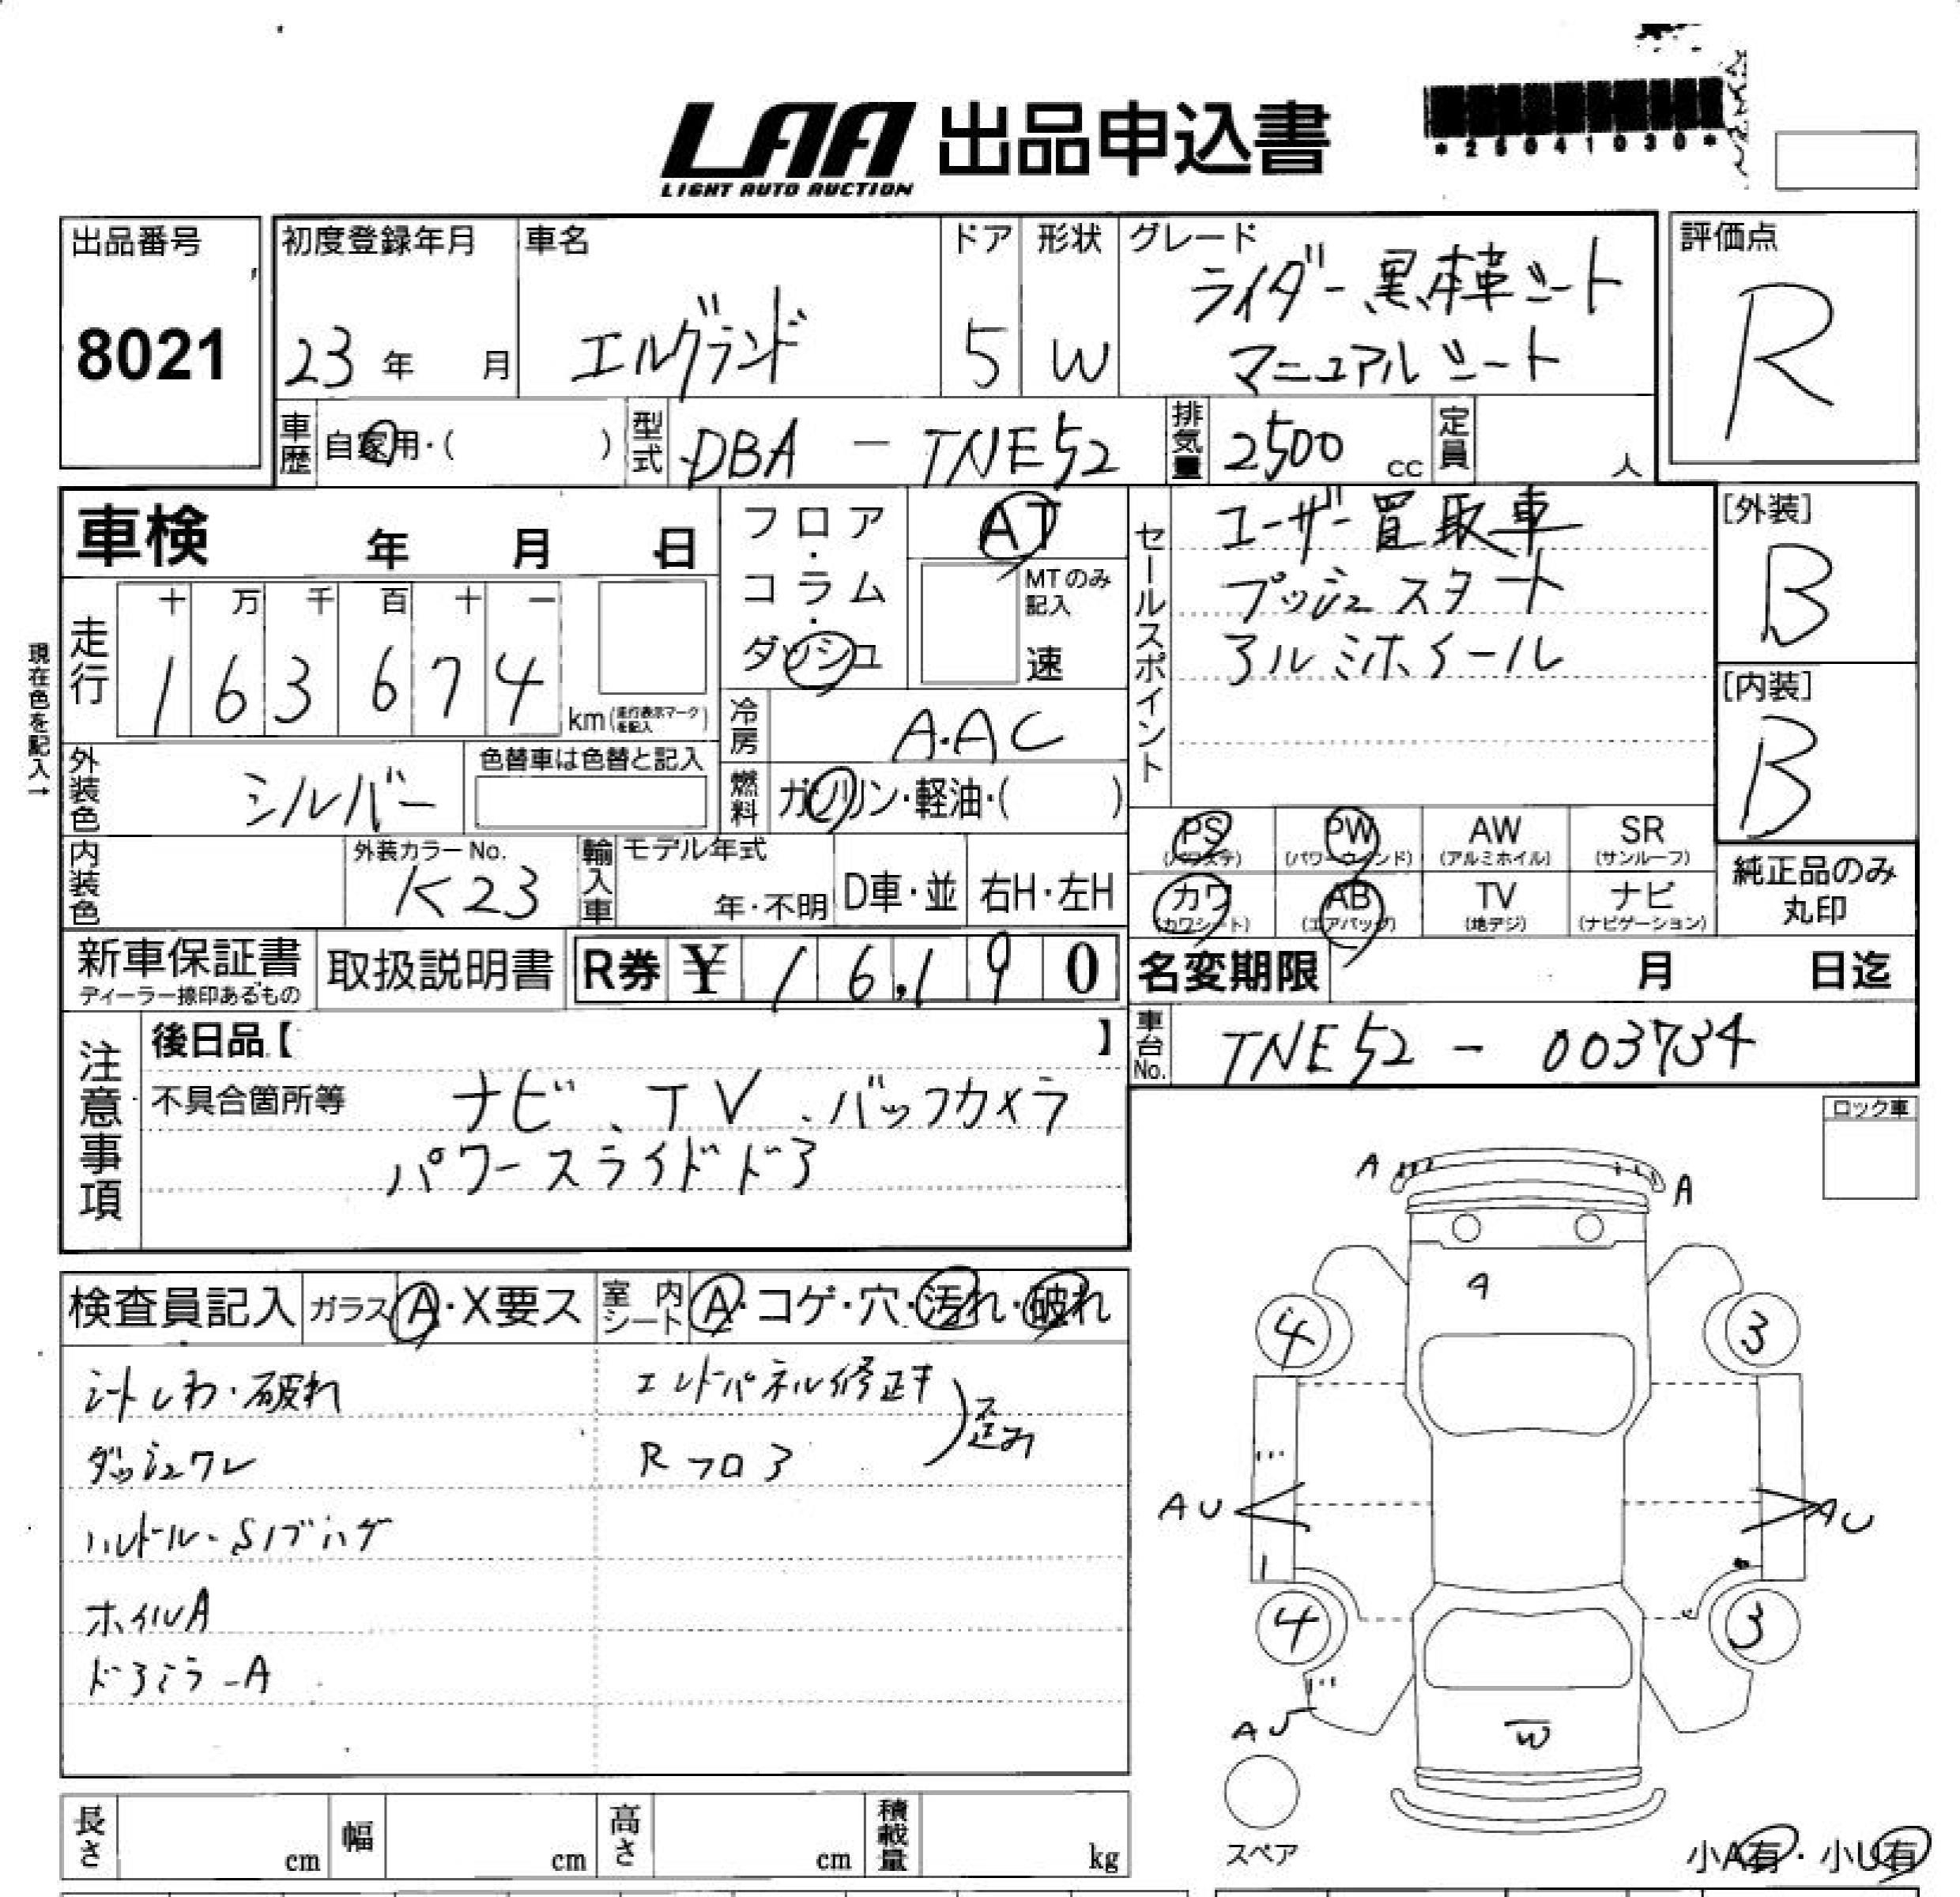 LAA 出品申込書
LIGHT AUTO AUCTION
*25041030*
出品番号
8021
初度登録年月
23 年 月
車名
エルグランド
ドア
5
形状
W
グレード
ライダー 黒本革シート
マニュアルシート
評価点
R
車歴 自家用・( )
型式 DBA - TNE52
排気量 2500 cc
定員 人
車検 年 月 日
フロア・コラム・ダッシュ
AT
MTのみ記入
速
セールスポイント
ユーザー買取車
プッシュスタート
アルミホイール
[外装]
B
[内装]
B
現在色を記入→
走行
十 万 千 百 十 一
1 6 3 6 7 4 km (走行表示マークを記入)
冷房 A.AC
外装色 シルバー
色替車は色替と記入
燃料 ガソリン・軽油・( )
PS (パワステ)
PW (パワーウインド)
AW (アルミホイル)
SR (サンルーフ)
カワ (カワシート)
AB (エアバッグ)
TV (地デジ)
ナビ (ナビゲーション)
純正品のみ丸印
内装色
外装カラーNo.
K23
輸入車
モデル年式
年・不明
D車・並
右H・左H
新車保証書
ディーラー捺印あるもの
取扱説明書
R券 ¥ 1 6,1 9 0
名変期限 月 日迄
車台No. TNE52 - 003734
注意事項
後日品【 】
不具合箇所等 ナビ、TV、バックカメラ
パワースライドドア
ロック車
検査員記入 ガラス A・X要ス 室内シート A・コゲ・穴・汚れ・破れ
シートしわ・破れ
ダッシュワレ
ハンドル・S/ブハゲ
ホイルA
ドアミラーA
エンドパネル修正キ
Rフロア
歪み
A
A
A
4
3
AU
AU
4
3
AU
W
スペア
小A有・小U有
長さ cm
幅 cm
高さ cm
積載量 kg